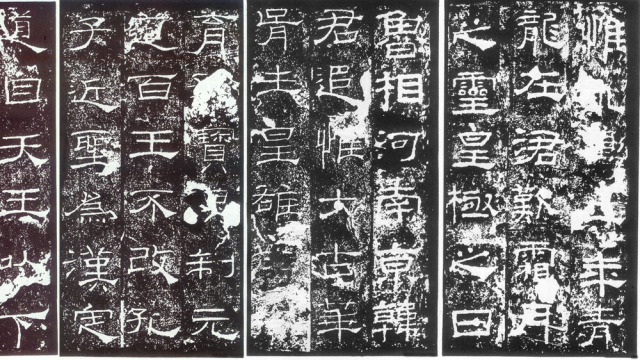 惟年青
龍在涒歎霜月
之靈皇極之日
魯相河南京韓
君追惟大古華
胥生皇雄
育寶制元
道百王不改孔
子近聖為漢定
道自天王以下